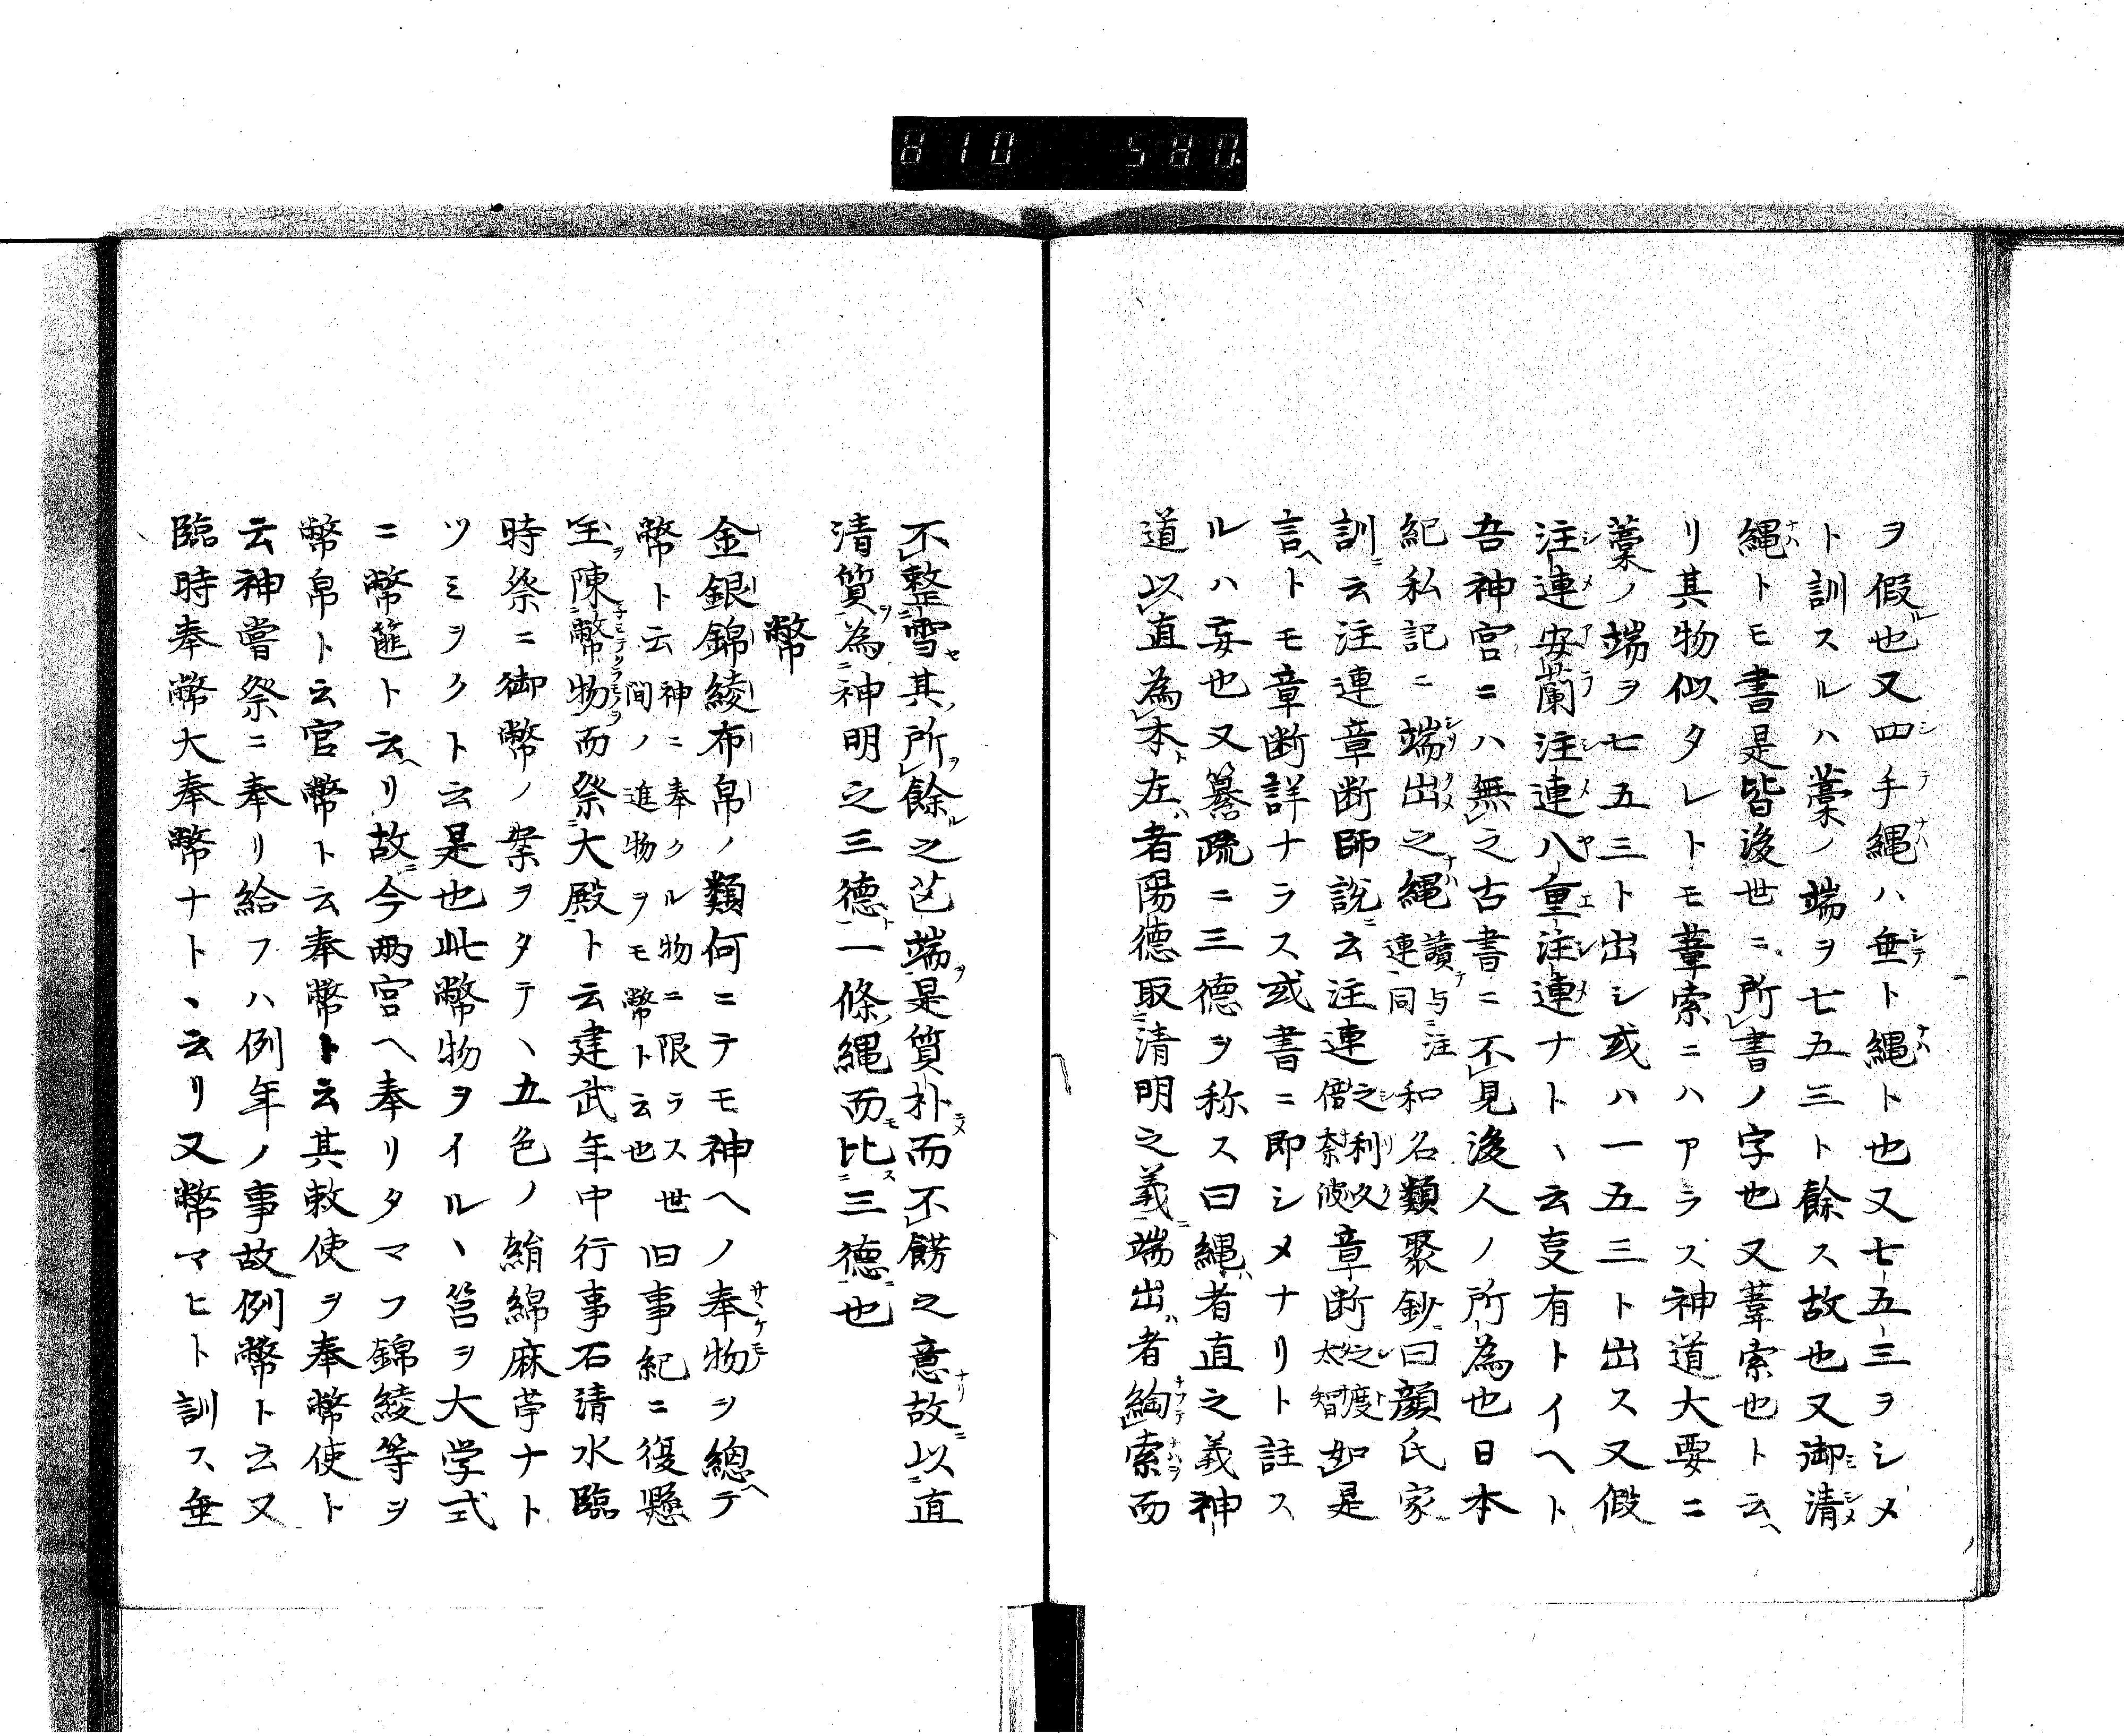 810 580.
ヲ假也又四手縄ハ垂ト縄ト也又七五三ヲシメ
ト訓スルハ藁ノ端ヲ七五三ト餘ス故也又御清
縄トモ書是皆後世ニ所書ノ字也又葦索也ト云
リ其物似タレトモ葦索ニハアラス神道大要ニ
藁ノ端ヲ七五三ト出シ或ハ一五三ト出ス又假
注連安蘭注連八重注連ナトヽ云叓有トイヘト
吾神宮ニハ無之古書ニ不見後人ノ所為也日本
紀私記ニ端出之縄讀与注連同和名類聚鈔曰顔氏家
訓云注連章断師說云注連之利久倍奈波章断之度太智如是
言トモ章断詳ナラス或書ニ即シメナリト註ス
ルハ妄也又纂疏ニ三德ヲ称ス曰縄者直之義神
道以直為本左者陽德取清明之義端出者綯索而
不整雪其所餘之芭端是質朴而不餝之意故以直
清質為神明之三德一條縄而比三德也
幣
金銀錦綾布帛ノ類何ニテモ神ヘノ奉物ヲ總テ
幣ト云神ニ奉クル物ニ限ラス世間ノ進物ヲモ幣ト云也旧事紀ニ復懸
玉陳幣物而祭大殿ト云建武年中行事石清水臨
時祭ニ御幣ノ案ヲタテヽ五色ノ絹綿麻苧ナト
ツミヲクト云是也此幣物ヲイルヽ筥ヲ大学式
ニ幣篚ト云リ故今两宮ヘ奉リタマフ錦綾等ヲ
幣帛ト云官幣ト云奉幣ト云其敕使ヲ奉幣使ト
云神嘗祭ニ奉リ給フハ例年ノ事故例幣ト云又
臨時奉幣大奉幣ナトヽ云リ又幣マヒト訓ス垂